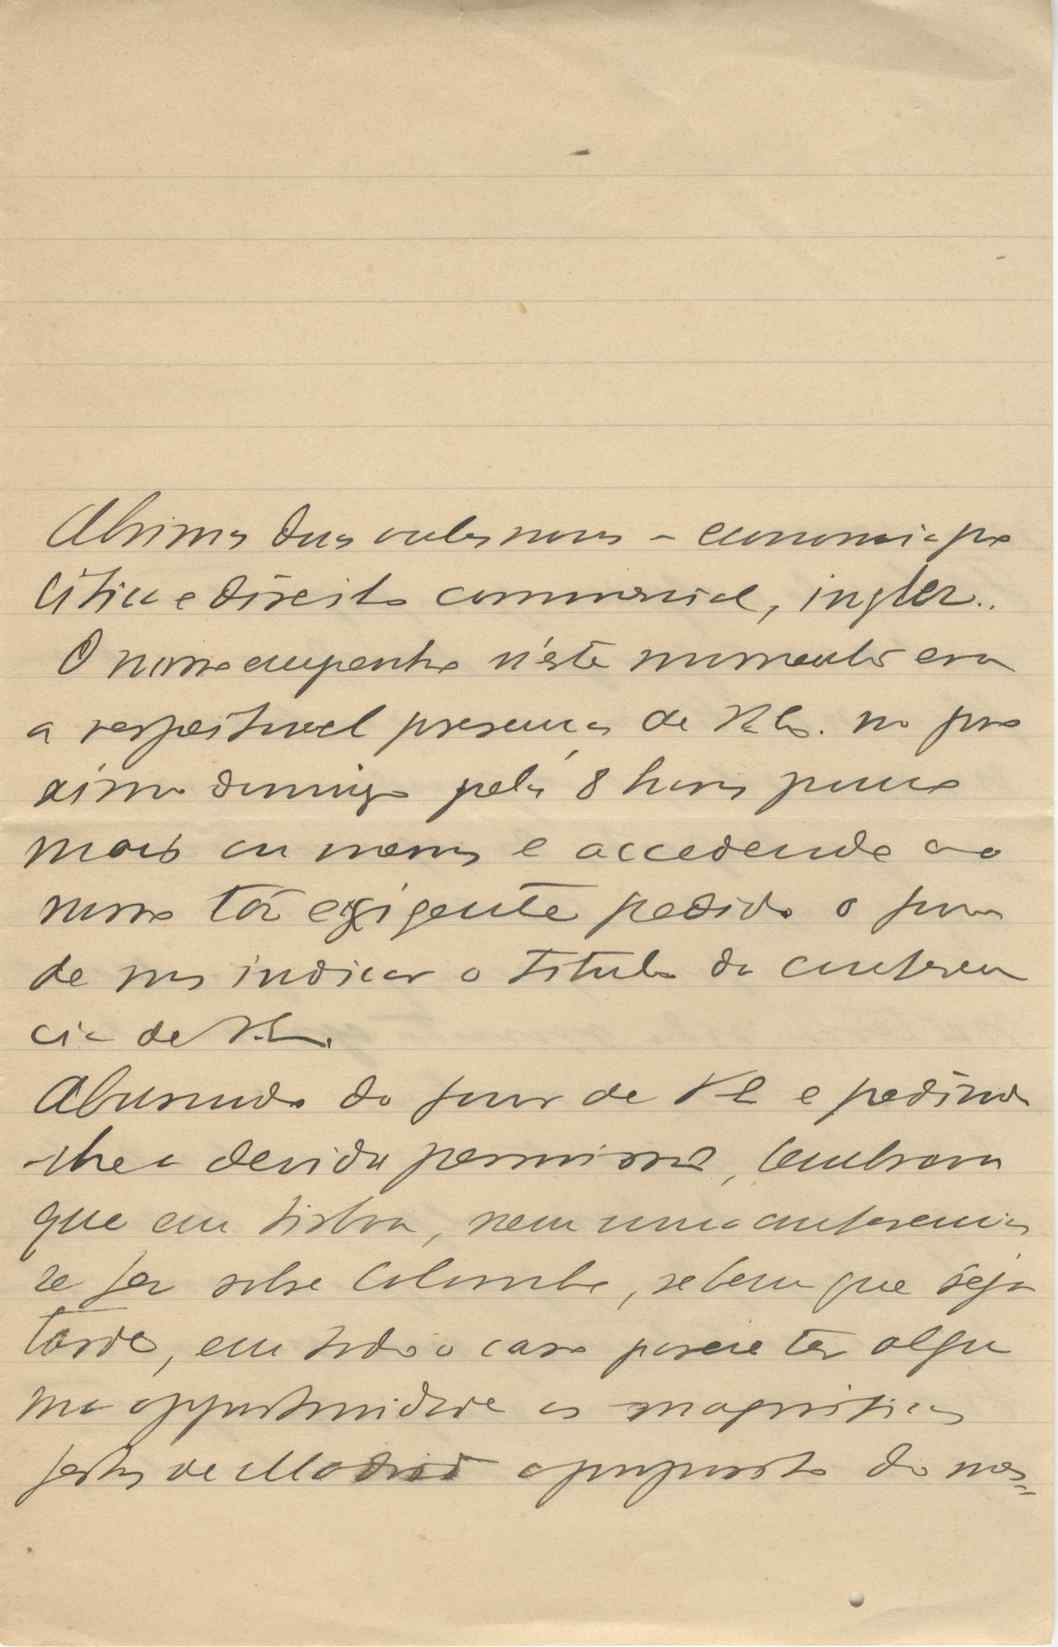 Abrimos duas aulas novas – economia po
litica e direito commercial, inglez..
O nosso empenho n'este momento era
a respeitavel presença de V. Ex. no pro
ximo domingo pelas 8 horas pouco
mais ou menos e accedendo ao
nosso tão exigente pedido o favor
de nos indicar o titulo da conferen
cia de V. Ex.
Abusando do favor de V E e pedindo
-lhe a devida permissão, lembrava
que em Lisboa, nem uma conferencia
se fez sobre Colombo, se bem que seja
tarde, em todo o caso parece ter algu
ma opportunidade as magnificas
festas de Madrid a proposito do nos=